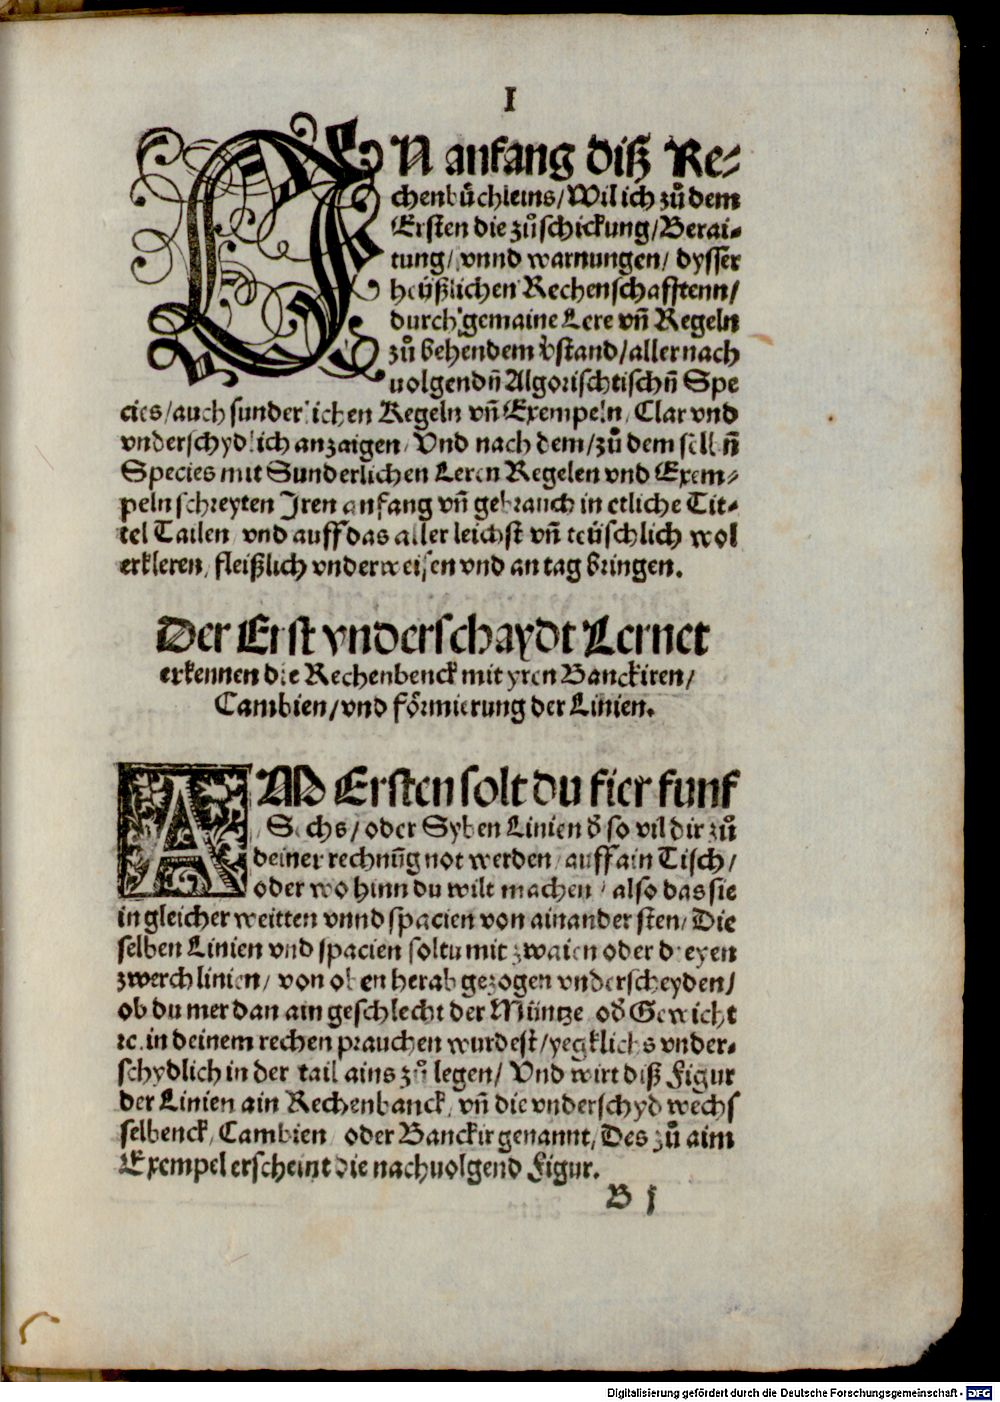 I
IN anfang diß Re⸗
chenbuͤchleins/Wil ich zuͦ dem
Ersten die zuͦschickung/Berai⸗
tung/vnnd warnungen/dysser
heüßlichen Rechenschafftenn/
durch gemaine Lere vñ Regeln
zuͦ behendem v̄stand/aller nach
uolgendñ Algorischtischñ Spe
cies/auch sunderlichen Regeln vñ Exempeln/Clar vnd
vnderschydlich anzaigen/Vnd nach dem/zuͦ dem selbñ
Species mit Sunderlichen Leren Regelen vnd Exem⸗
peln schreyten Iren anfang vñ gebrauch in etliche Tit⸗
tel Tailen/vnd auff das aller leichst vñ teüschlich wol
erkleren/fleißlich vnderweisen vnd an tag bringen.
Der Erst vnderschaydt Lernet
erkennen die Rechenbenck mit yren Banckiren/
Cambien/vnd foͤrmierung der Linien.
AM Ersten solt du fier funf
Sechs/oder Syben Linien od̄ so vil dir zuͦ
deiner rechnūg not werden/auff ain Tisch/
oder wo hinn du wilt machen/also das sie
in gleicher weitten vnnd spacien von ainander sten/Die
selben Linien vnd spacien soltu mit zwaien oder dreyen
zwerch linien/von oben herab gezogen vnderscheyden/
ob du mer dan ain geschlecht der Müntze/od̄ Gewicht
ꝛc. in deinem rechen prauchen wurdest/yegklichs vnder⸗
schydlich in der tail ains zuͦ legen/Vnd wirt diß Figur
der Linien ain Rechenbanck/vñ die vnderschyd wechs
selbenck/Cambien/oder Banckir genannt/Des zuͦ aim
Exempel erscheint die nachuolgend Figur.
B j
Digitalisierung gefördert durch die Deutsche Forschungsgemeinschaft - DFG